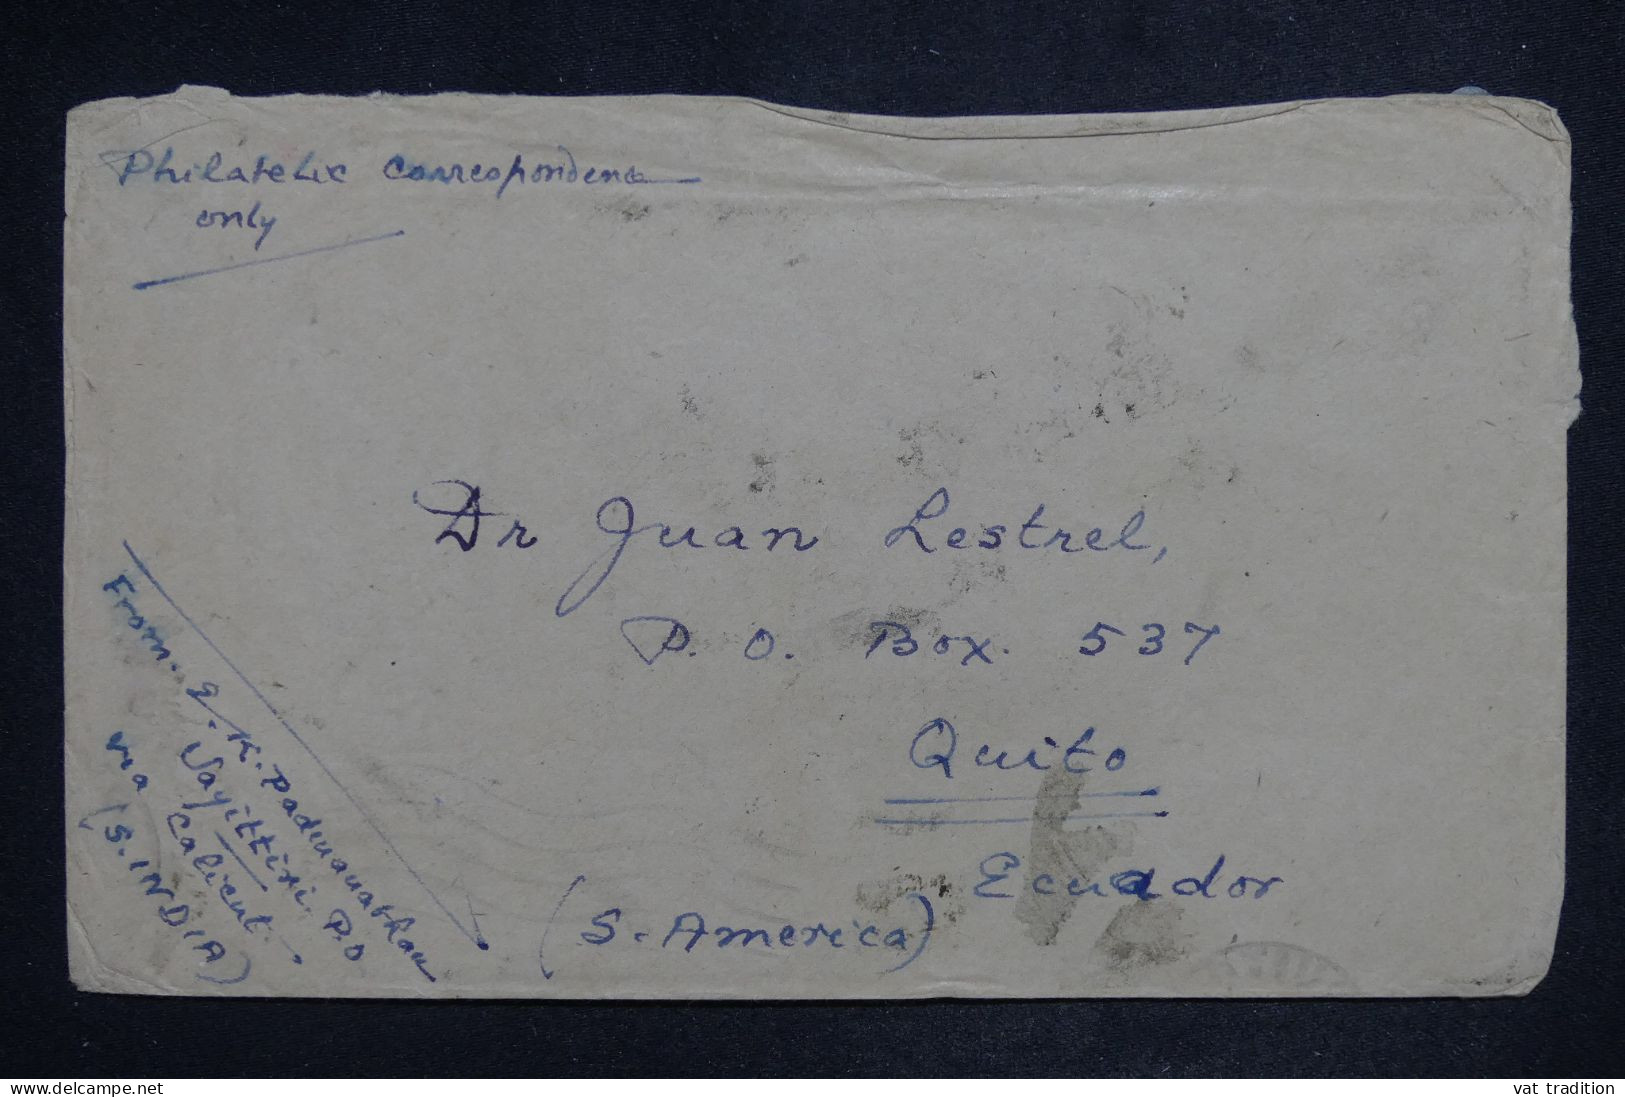 Philatelic correspondence
only
Dr Juan Lestrel,
P. O. Box. 537
Quito
Ecuador
(S. America)
From. Q. K. Padmanabhan
Nayittini. P.O
via Calicut.
(S. INDIA)
www.delcampe.net
vat tradition